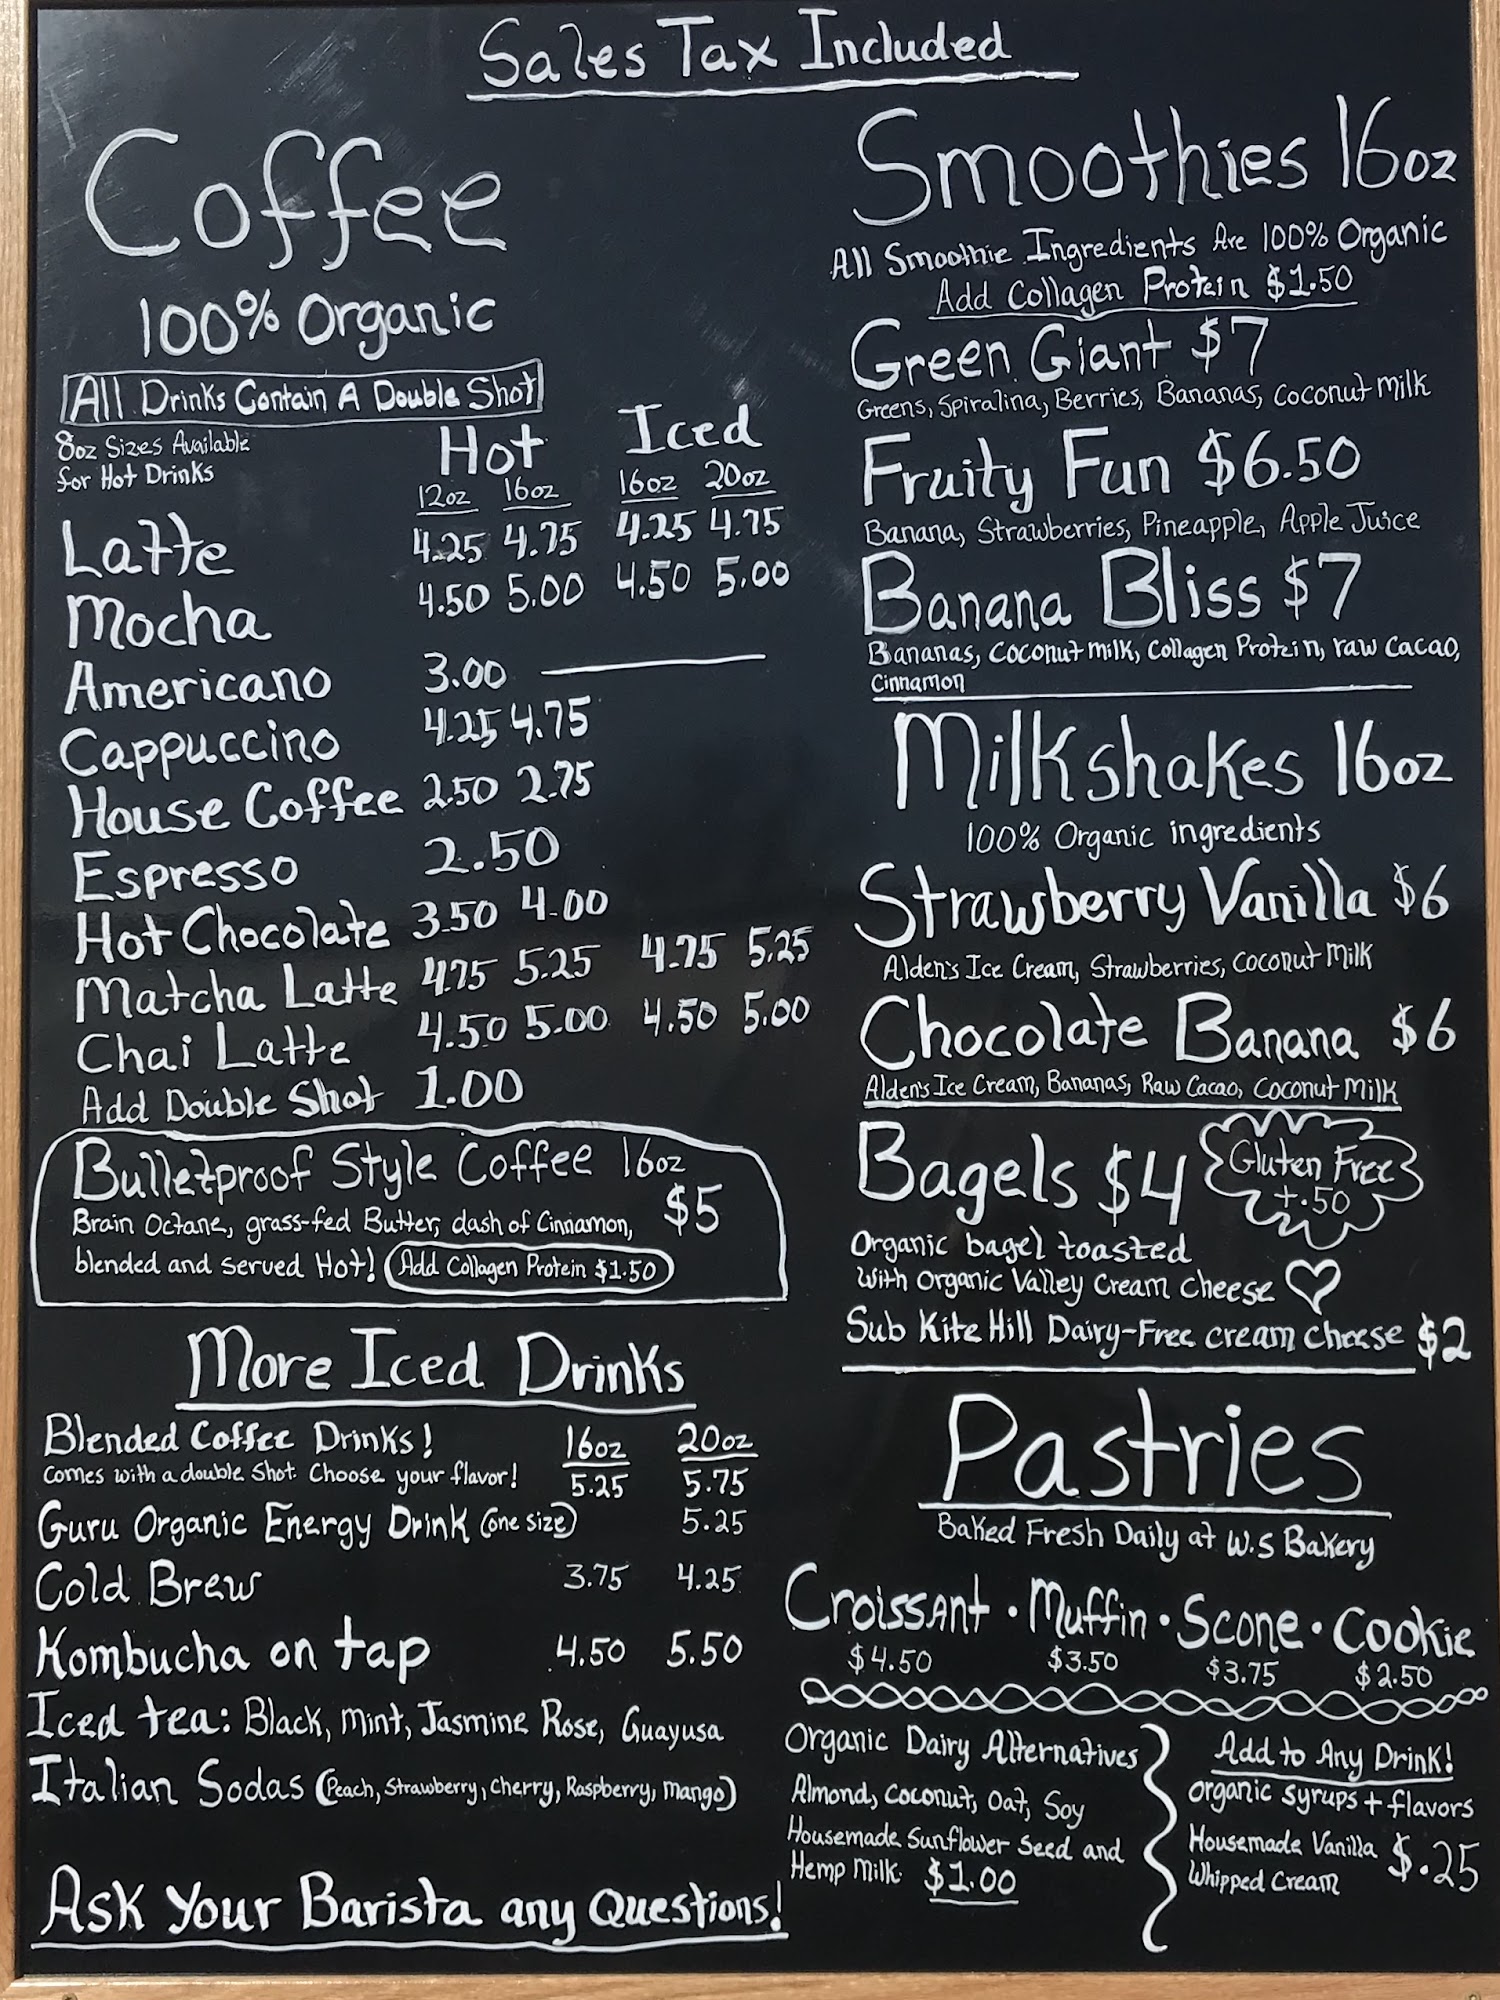 Sales Tax Included
Coffee
100% Organic
All Drinks Contain A Double Shot
8oz Sizes Available
for Hot Drinks
Hot Iced
12oz 16oz 16oz 20oz
Latte 4.25 4.75 4.25 4.75
Mocha 4.50 5.00 4.50 5.00
Americano 3.00
Cappuccino 4.25 4.75
House Coffee 2.50 2.75
Espresso 2.50
Hot Chocolate 3.50 4.00
Matcha Latte 4.75 5.25 4.75 5.25
Chai Latte 4.50 5.00 4.50 5.00
Add Double Shot 1.00
Bulletproof Style Coffee 16oz
$5
Brain Octane, grass-fed Butter, dash of Cinnamon,
blended and served Hot! Add Collagen Protein $1.50
More Iced Drinks
Blended Coffee Drinks! 16oz 20oz
Comes with a double shot. Choose your flavor! 5.25 5.75
Guru Organic Energy Drink (one size) 5.25
Cold Brew 3.75 4.25
Kombucha on tap 4.50 5.50
Iced tea: Black, Mint, Jasmine Rose, Guayusa
Italian Sodas (Peach, Strawberry, Cherry, Raspberry, Mango)
Ask Your Barista any Questions!
Smoothies 16oz
All Smoothie Ingredients Are 100% Organic
Add Collagen Protein $1.50
Green Giant $7
Greens, Spiralina, Berries, Bananas, Coconut Milk
Fruity Fun $6.50
Banana, Strawberries, Pineapple, Apple Juice
Banana Bliss $7
Bananas, Coconut milk, Collagen Protein, raw Cacao,
Cinnamon
Milkshakes 16oz
100% Organic ingredients
Strawberry Vanilla $6
Alden's Ice Cream, Strawberries, Coconut Milk
Chocolate Banana $6
Alden's Ice Cream, Bananas, Raw Cacao, Coconut Milk
Bagels $4
Gluten Free
+.50
Organic bagel toasted
with Organic Valley Cream cheese
Sub Kite Hill Dairy-Free cream cheese $2
Pastries
Baked Fresh Daily at W.S Bakery
Croissant · Muffin · Scone · Cookie
$4.50 $3.50 $3.75 $2.50
Organic Dairy Alternatives
Almond, Coconut, Oat, Soy
Housemade Sunflower Seed and
Hemp Milk. $1.00
Add to Any Drink!
Organic syrups + flavors
Housemade Vanilla
Whipped Cream $.25